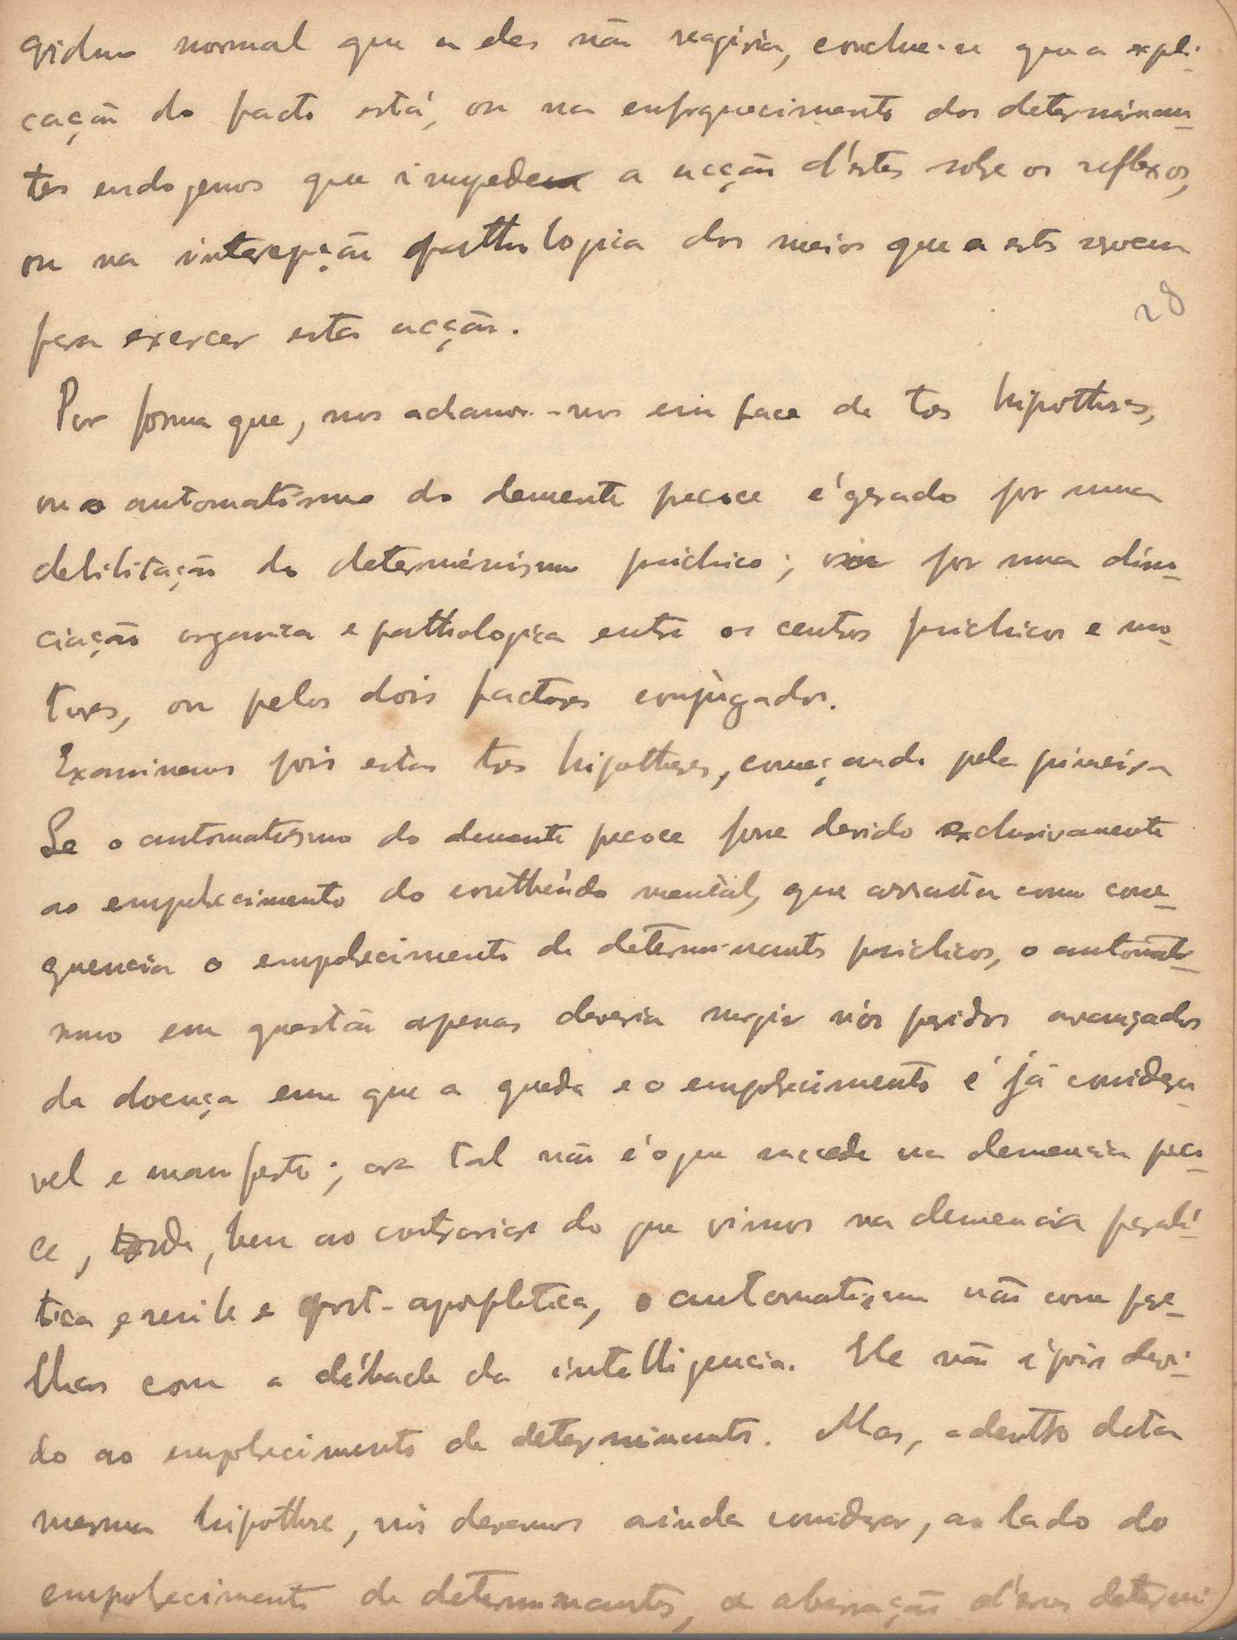 viduo normal que a elas não reagiria, conclue-se que a expli-
cação do facto está, ou no enfraquecimento dos determinan-
tes endogenos que impedem a acção d'estes sobre os reflexos,
ou na intercepção pathologica dos meios que a estes servem
para exercer esta acção.
28
Por forma que, nos achamos-nos em face de tres hipotheses,
ou o automatismo do demente precoce é gerado por uma
debilitação do determinismo psichico; ou por uma disso-
ciação organica e pathologica entre os centros psichicos e mo-
tores, ou pelos dois factores conjugados.
Examinemos pois estas tres hipotheses, começando pela primeira
Se o automatismo do demente precoce fosse devido exclusivamente
ao empobrecimento do contheúdo mental, que arrasta como conse-
quencia o empobrecimento de determinantes psichicos, o automatis-
mo em questão apenas deveria surgir nos periodos avançados
da doença em que a queda e o empobrecimento é já considera-
vel e manifesto; ora tal não é o que succede na demencia preco-
ce, onde, bem ao contrario do que vimos na demencia parali-
tica, e senil e e post-apopletica, o automatismo não corre pare-
lhas com a débacle da intelligencia. Elle não é pois devi-
do ao empobrecimento de determinantes. Mas, adentro desta
mesma hipothese, nós devemos ainda considerar, ao lado do
empobrecimento de determinantes, a aberração d'esses determi